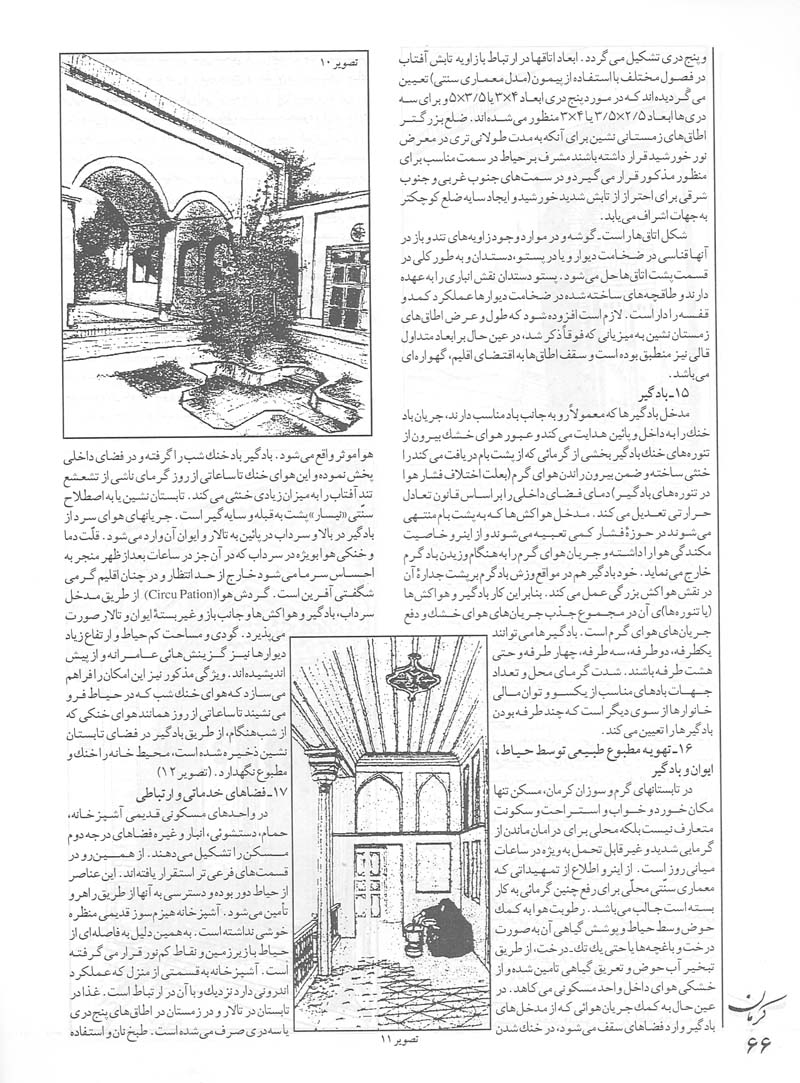 و پنج دری تشکیل می گردد. ابعاد اتاقها در ارتباط با زاویه تابش آفتاب
در فصول مختلف با استفاده از پیمون (مدل معماری سنتی) تعیین
می گردیده اند که در مورد پنج دری ابعاد ۴×۳ یا ۳/۵×۵ و برای سه
دری ها ابعاد ۲/۵×۳/۵ یا ۴×۳ منظور می شده اند. ضلع بزرگتر
اطاق های زمستانی نشین برای آنکه به مدت طولانی تری در معرض
نور خورشید قرار داشته باشند مشرف بر حیاط در سمت مناسب برای
منظور مذکور قرار می گیرد و در سمت های جنوب غربی و جنوب
شرقی برای احتراز از تابش شدید خورشید و ایجاد سایه ضلع کوچکتر
به جهات اشراف می یابد.
شکل اتاق ها راست ـ گوشه و در موارد وجود زاویه های تند و باز در
آنها قناسی در ضخامت دیوار و یا در پستو، دستدان و به طور کلی در
قسمت پشت اتاق ها حل می شود. پستو دستدان نقش انباری را به عهده
دارند و طاقچه های ساخته شده در ضخامت دیوارها عملکرد کمد و
قفسه را داراست. لازم است افزوده شود که طول و عرض اطاق های
زمستان نشین به میزیانی که فوقاً ذکر شد، در عین حال بر ابعاد متداول
قالی نیز منطبق بوده است و سقف اطاق ها به اقتضای اقلیم، گهواره ای
می باشد.
۱۵ـ بادگیر
مدخل بادگیرها که معمولاً رو به جانب باد مناسب دارند، جریان باد
خنک را به داخل و پائین هدایت می کند و عبور هوای خشک بیرون از
تنوره های خنک بادگیر بخشی از گرمائی که از پشت بام دریافت می کند را
خنثی ساخته و ضمن بیرون راندن هوای گرم (بعلت اختلاف فشار هوا
در تنوره های بادگیر) دمای فضای داخلی را بر اساس قانون تعادل
حرارتی تعدیل می کند. مدخل هواکش ها که به پشت بام منتهی
می شوند در حوزه فشار کمی تعبیه می شوند و از اینرو خاصیت
مکندگی هوا را داشته و جریان هوای گرم را به هنگام وزیدن باد گرم
خارج می نماید. خود بادگیر هم در مواقع وزش باد گرم بر پشت جدارهٔ آن
در نقش هواکش بزرگی عمل می کند. بنابر این کار بادگیر و هواکش ها
(یا تنوره ها)ی آن در مجموع جذب جریان های هوای خشک و دفع
جریان های هوای گرم است. بادگیرها می توانند
یکطرفه، دوطرفه، سه طرفه، چهار طرفه و حتی
هشت طرفه باشند. شدت گرمای محل و تعداد
جهات بادهای مناسب از یکسو و توان مالی
خانوارها از سوی دیگر است که چند طرفه بودن
بادگیرها را تعیین می کند.
۱۶ـ تهویه مطبوع طبیعی توسط حیاط،
ایوان و بادگیر
در تابستانهای گرم و سوزان کرمان، مسکن تنها
مکان خورد و خواب و استراحت و سکونت
متعارف نیست بلکه محلی برای در امان ماندن از
گرمایی شدید و غیر قابل تحمل به ویژه در ساعات
میانی روز است. از اینرو اطلاع از تمهیداتی که
معماری سنتی محلّی برای رفع چنین گرمائی به کار
بسته است جالب می باشد. رطوبت هوا به کمک
حوض وسط حیاط و پوشش گیاهی آن به صورت
درخت و باغچه ها یا حتی یک تک ـ درخت، از طریق
تبخیر آب حوض و تعریق گیاهی تامین شده و از
خشکی هوای داخل واحد مسکونی می کاهد. در
عین حال به کمک جریان هوائی که از مدخل های
بادگیر وارد فضاهای سقف می شود، در خنک شدن
تصویر ۱۰
هوا موثر واقع می شود. بادگیر باد خنک شب را گرفته و در فضای داخلی
پخش نموده و این هوای خنک تا ساعاتی از روز گرمای ناشی از تشعشع
تند آفتاب را به میزان زیادی خنثی می کند. تابستان نشین یا به اصطلاح
سنّتی «نیسار» پشت به قبله و سایه گیر است. جریانهای هوای سرد از
بادگیر در بالا و سرداب در پائین به تالار و ایوان آن وارد می شود. قلت دما
و خنکی هوا بویژه در سرداب که در آن جز در ساعات بعد از ظهر منجر به
احساس سرما می شود خارج از حد انتظار و در چنان اقلیم گرمی
شگفتی آفرین است. گردش هوا (Circu Pation) از طریق مدخل
سرداب، بادگیر و هواکش ها و جانب باز و غیر بستهٔ ایوان و تالار صورت
می پذیرد. گودی و مساحت کم حیاط و ارتفاع زیاد
دیوارها نیز گزینش هائی عامرانه و از پیش
اندیشیده اند. ویژگی مذکور نیز این امکان را فراهم
می سازد که هوای خنک شب که در حیاط فرو
می نشیند تا ساعاتی از روز همانند هوای خنکی که
از شب هنگام، از طریق بادگیر در فضای تابستان
نشین ذخیره شده است، محیط خانه را خنک و
مطبوع نگهدارد. (تصویر ۱۲)
۱۷ـ فضاهای خدماتی و ارتباطی
در واحدهای مسکونی قدیمی آشپزخانه،
حمام، دستشوئی، انبار و غیره فضاهای درجه دوم
مسکن را تشکیل می دهند. از همین رو در
قسمت های فرعی تر استقرار یافته اند. این عناصر
از حیاط دور بوده و دسترسی به آنها از طریق راهرو
تأمین می شود. آشپزخانه هیزم سوز قدیمی منظره
خوشی نداشته است. به همین دلیل به فاصله ای از
حیاط یا زیرزمین و نقاط کم نور قرار می گرفته
است. آشپزخانه به قسمتی از منزل که عملکرد
اندرونی دارد نزدیک و با آن در ارتباط است. غذا در
تابستان در تالار و در زمستان در اطاق های پنج دری
یا سه دری صرف می شده است. طبخ نان و استفاده
تصویر ۱۱
کرمان
۶۶